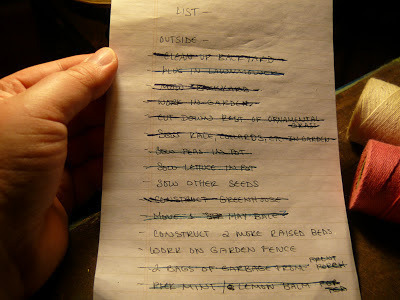 LIST —
OUTSIDE —
- CLEAN UP BACKYARD
- PLUG IN
- MOW
- WORK IN GARDEN
- CUT DOWN REST OF ORNAMENTAL GRASS
- SOW KALE, IN GARDEN
- SOW PEAS IN POT
- SOW LETTUCE IN POT
- SOW OTHER SEEDS
- CONSTRUCT GREENHOUSE
- MOVE HAY BALES
- CONSTRUCT 2 MORE RAISED BEDS
- WORK ON GARDEN FENCE
- 2 BAGS OF GARBAGE FROM FRONT PORCH
- PICK MINT & LEMON BALM FOR TEA